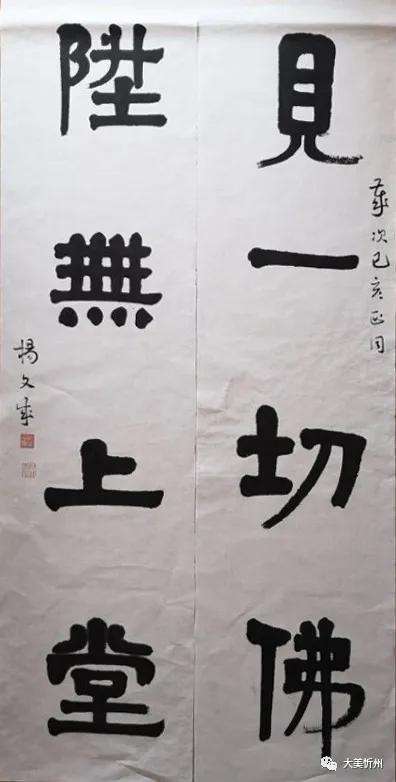 見一切佛
歲次己亥正月
陞無上堂
楊文成
大美忻州